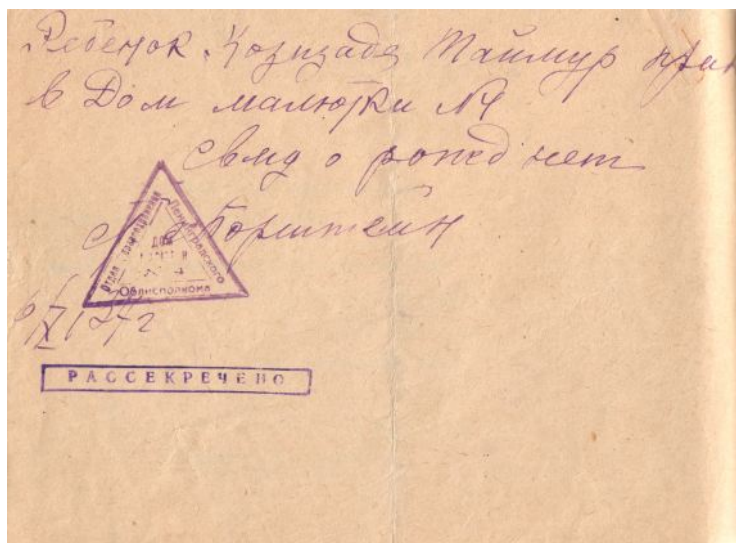 Ребенок Козизаде Таймур
в Дом малютки №4
свид о рожд нет
Борштейн
Отдел здравоохранения Ленинградского
ДОМ
4
Облисполкома
РАССЕКРЕЧЕНО